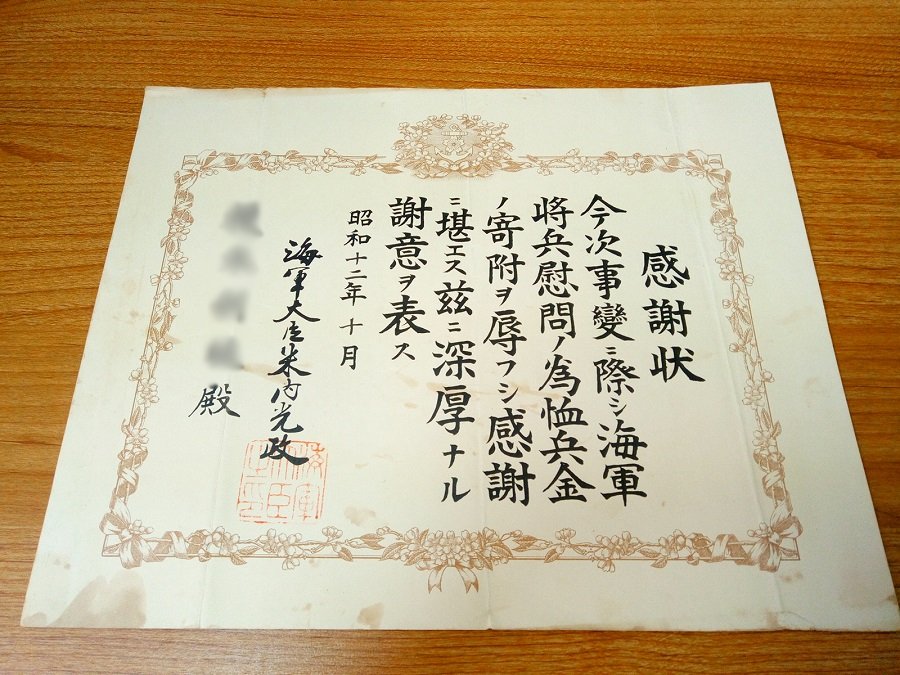 感謝状
今次事變ニ際シ海軍
将兵慰問ノ為恤兵金
ノ寄附ヲ辱フシ感謝
ニ堪エス茲ニ深厚ナル
謝意ヲ表ス
昭和十二年十月
海軍大臣米内光政
海軍大臣之印
殿